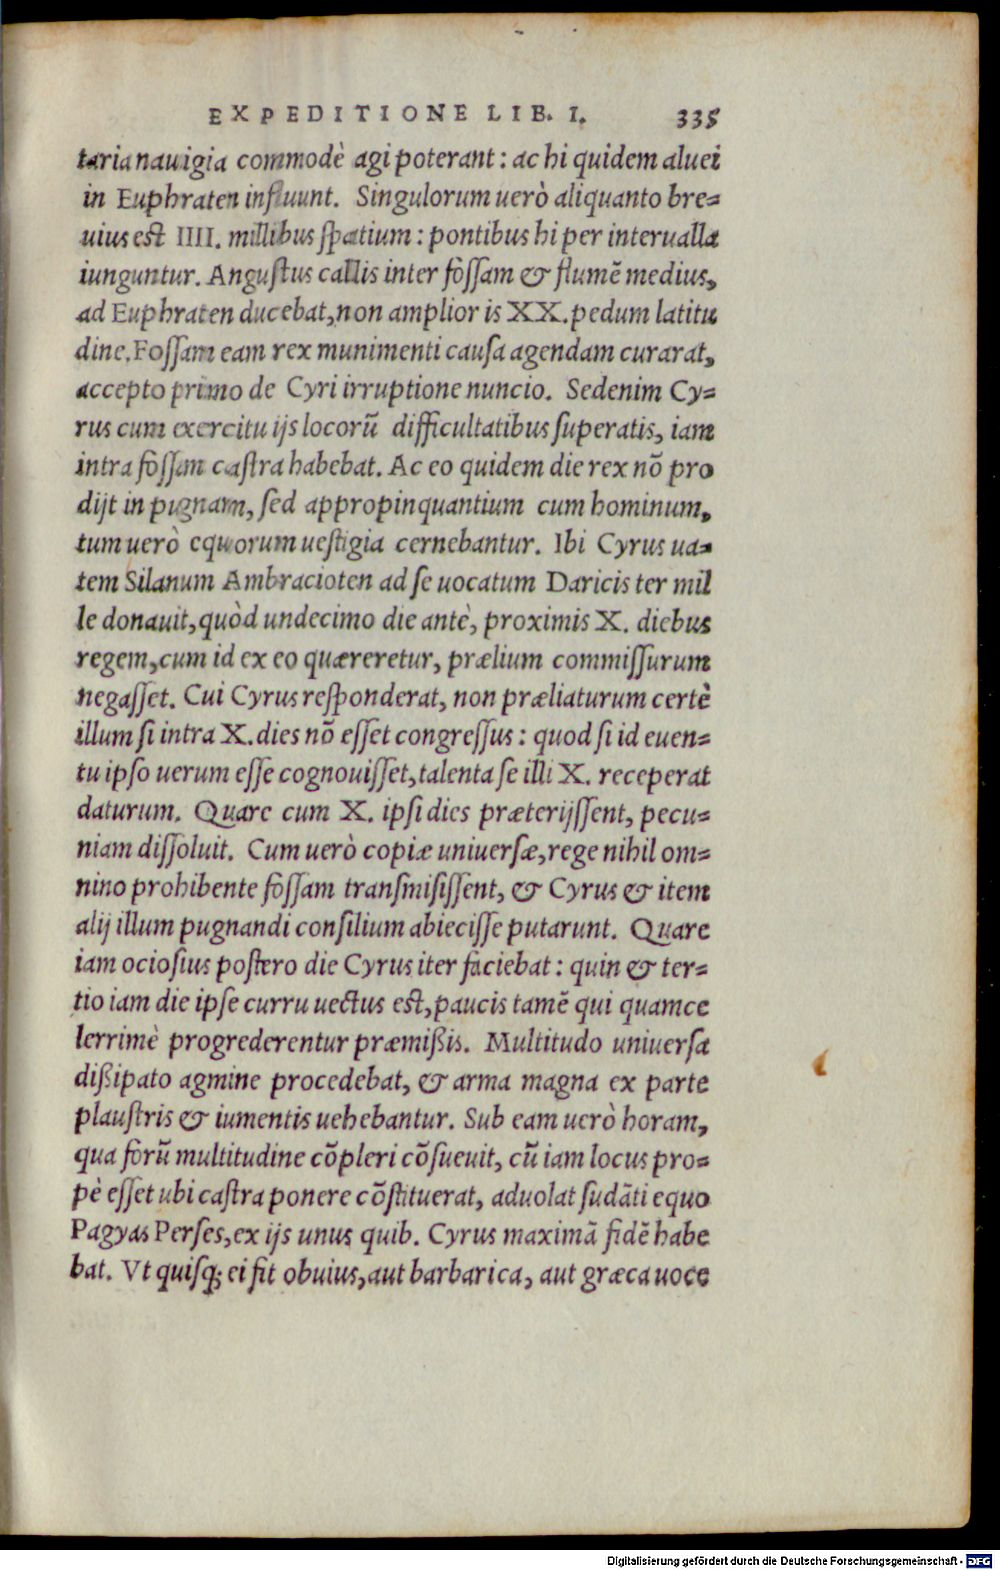 EXPEDITIONE LIB. I. 335
taria nauigia commodè agi poterant: ac hi quidem aluei
in Euphraten influunt. Singulorum uerò aliquanto bre=
uius est IIII. millibus spatium: pontibus hi per interualla
iunguntur. Angustus callis inter fossam & flumē medius,
ad Euphraten ducebat, non amplior is XX. pedum latitu
dine. Fossam eam rex munimenti causa agendam curarat,
accepto primo de Cyri irruptione nuncio. Sedenim Cy=
rus cum exercitu ijs locorū difficultatibus superatis, iam
intra fossam castra habebat. Ac eo quidem die rex nō pro
dijt in pugnam, sed appropinquantium cum hominum,
tum uerò equorum uestigia cernebantur. Ibi Cyrus ua=
tem Silanum Ambracioten ad se uocatum Daricis ter mil
le donauit, quòd undecimo die antè, proximis X. diebus
regem, cum id ex eo quæreretur, prælium commissurum
negasset. Cui Cyrus responderat, non præliaturum certè
illum si intra X. dies nō esset congressus: quod si id euen=
tu ipso uerum esse cognouisset, talenta se illi X. receperat
daturum. Quare cum X. ipsi dies præterijssent, pecu=
niam dissoluit. Cum uerò copiæ uniuersæ, rege nihil om=
nino prohibente fossam transmisissent, & Cyrus & item
alij illum pugnandi consilium abiecisse putarunt. Quare
iam ociosius postero die Cyrus iter faciebat: quin & ter=
tio iam die ipse curru uectus est, paucis tamē qui quamce
lerrimè progrederentur præmißis. Multitudo uniuersa
dißipato agmine procedebat, & arma magna ex parte
plaustris & iumentis uehebantur. Sub eam uerò horam,
qua forū multitudine cōpleri cōsueuit, cū iam locus pro=
pè esset ubi castra ponere cōstituerat, aduolat sudāti equo
Pagyas Perses, ex ijs unus quib. Cyrus maximā fidē habe
bat. Vt quisq; ei fit obuius, aut barbarica, aut græca uoce
Digitalisierung gefördert durch die Deutsche Forschungsgemeinschaft - DFG